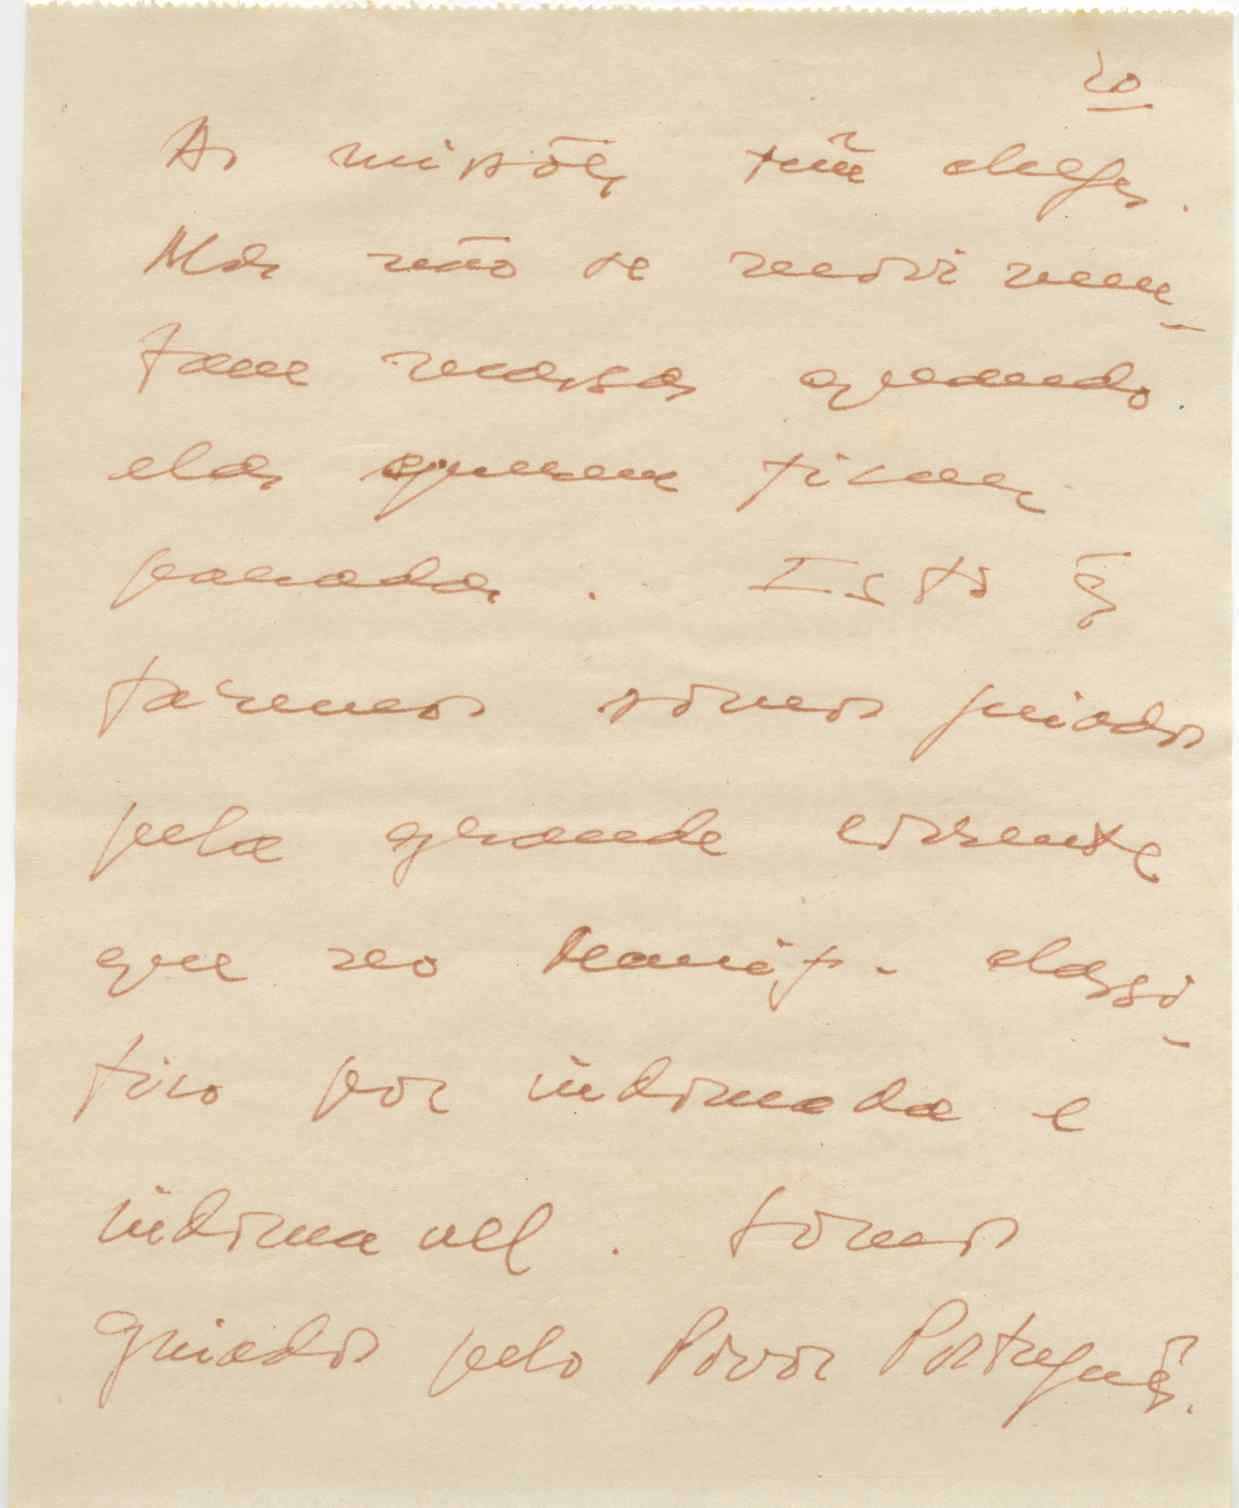 20
As missões têm chefes.
Mas não se movimen-
tam massas quando
elas querem ficar
paradas. Isto q̄
fazemos somos guiados
pela grande corrente
que no Manif. classi-
fico por indomada e
indomavel. Fomos
guiados pelo Povo Português.